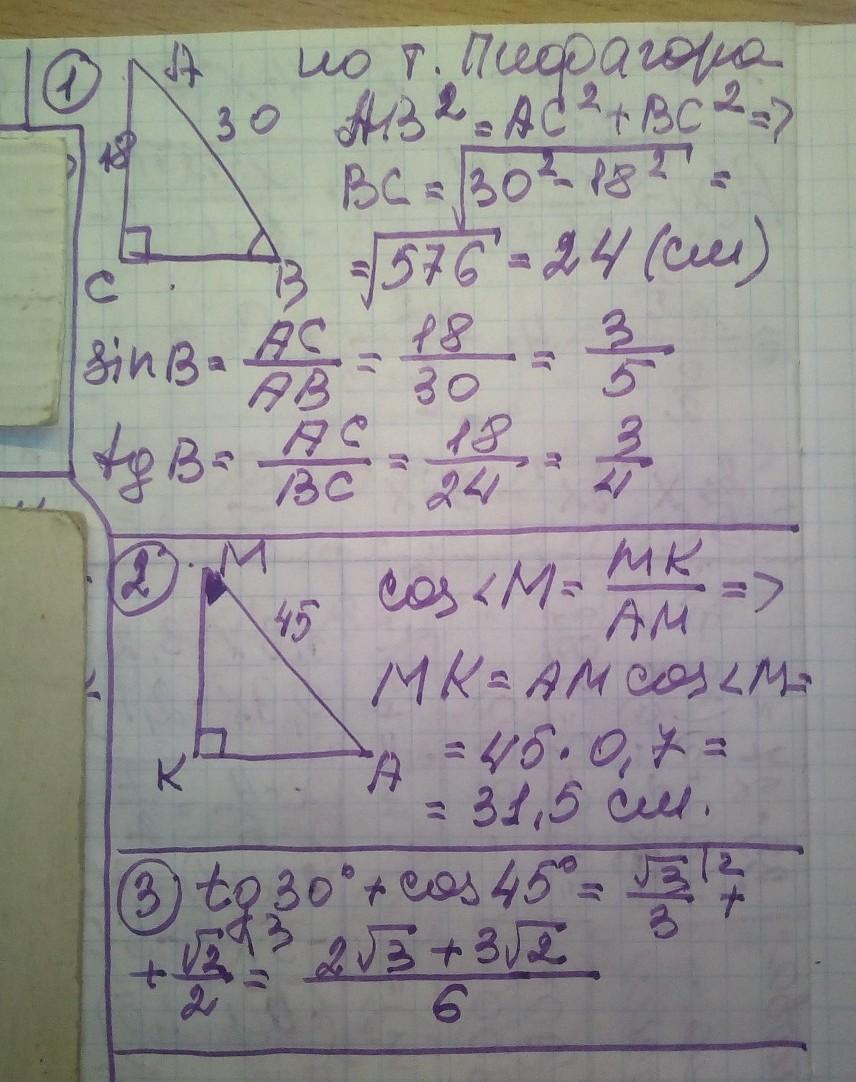 ① A по т. Пифагора
30 AB² = AC² + BC² =>
18 BC = √30² - 18² =
C B = √576 = 24 (см)
sin B = AC/AB = 18/30 = 3/5
tg B = AC/BC = 18/24 = 3/4
② M cos<M = MK/AM =>
45
MK = AM cos<M =
K A = 45 · 0,7 =
= 31,5 см.
③ tg 30° + cos 45° = √3/3 |2 +
+ √2/2 |3 = 2√3 + 3√2/6